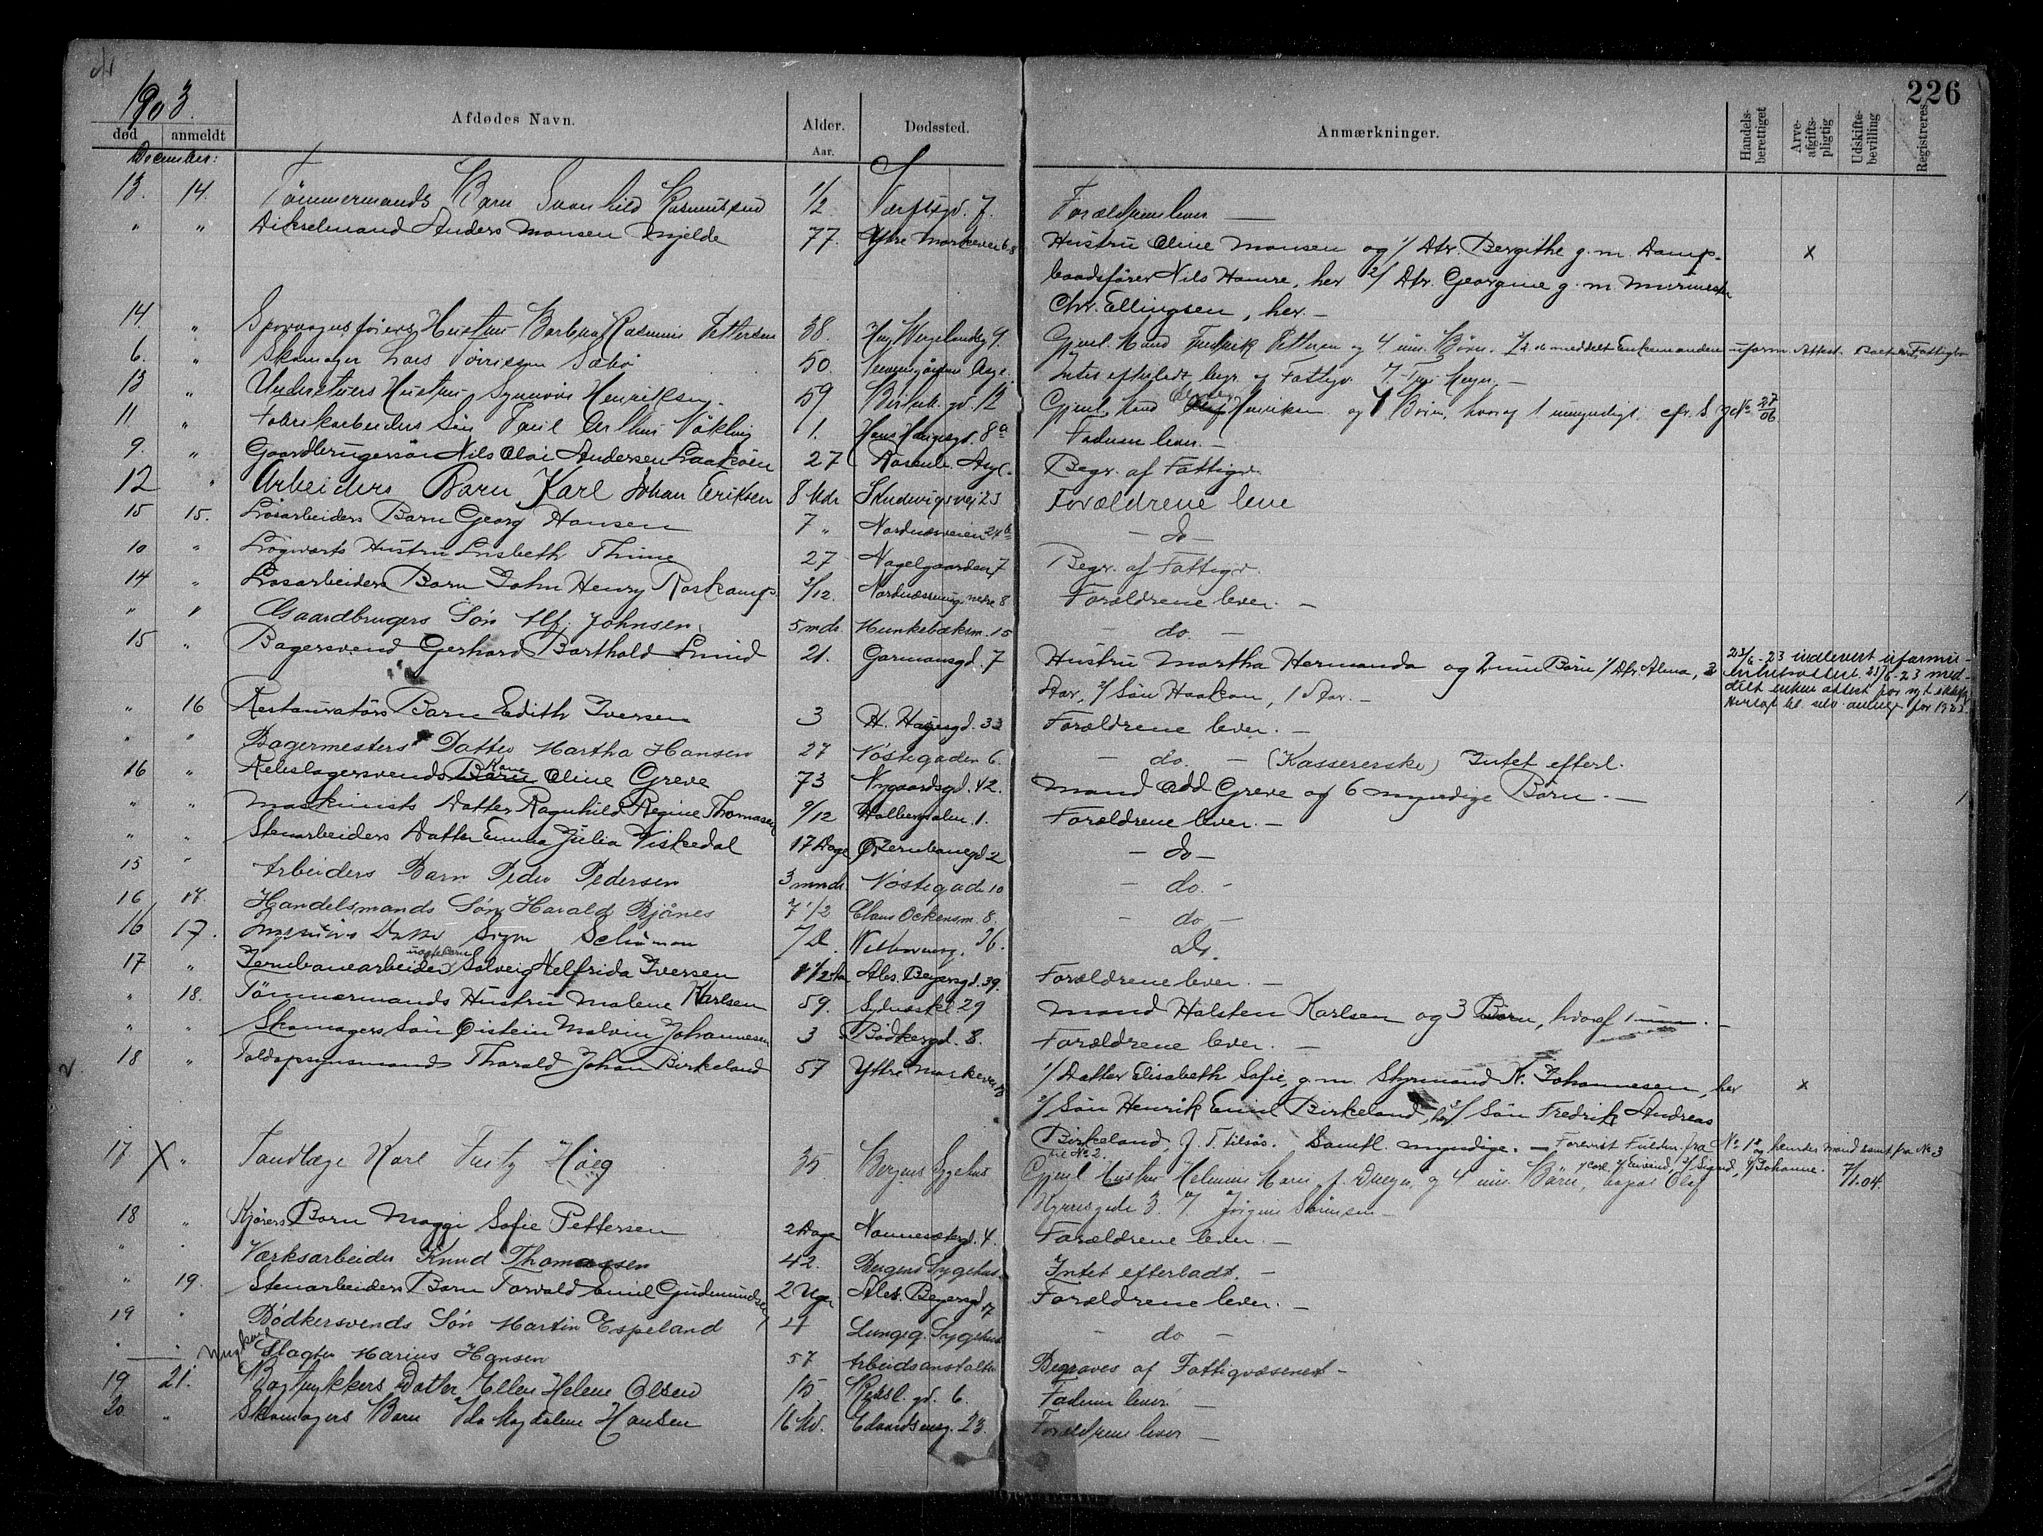 226
1903.
død anmeldt Afdødes Navn. Alder. Aar. Dødssted. Anmærkninger. Handelsberettiget Arveafgiftspligtig Udskiftebevilling Registreres
December:
13. 14. Tømmermands Barn Svanhild Rasmussen 1/2 Værftsgd. 7. Forældrene lever —
" " Anders Monsen Mjelde 77. Ytre Markevei 68 Hustru Oline Monsen og 1/ Dtr. Bergithe g.m. Damp- x
baadsfører Nils Hamre, her 2/ Dtr. Georgine g.m. Murmester
Chr. Ellingsen, her. —
14. " Sporvognsføiers Hustru Barbra Rasmine Pettersen 38. Hag. Wergelandsg 9. Gjenl. Mand Fredrik Pettersen og 4 um. Børn. meddelt Enkemanden uform. Attest.
6. " Skomager Lars Sæbø 50. Intet efterladt, begr. af Fattigv.
13 " Hustru Synnøve Henriksen. 59 Birkeb. gd. 12 Gjenl. Mand Henriksen og Børn, hvoraf 1 umyndigt. cfr. S. 27/06
11 " Fabrikarbeiders Søn Arthur 1. Hans Haugesgd. 8a Faderen lever. —
9. " Gaardbrugersøn Nils Olai Andersen 27 Rosenb. Asyl. Begr. af Fattigv.
12 " Arbeiders Barn Karl Johan Eriksen 8 Mdr Skudevigsvei 23 Forældrene leve
15 15. Løsarbeiders Barn Georg Hansen 7 " Nordnæsveien 24b — do —
10 " Hustru Lisbeth Thime 27 Nagelgaarden 7 Begr. af Fattigv.
14 " Løsarbeiders Barn John Henry Roskamp 3/12. 8 Forældrene lever. —
" " Gaardbrugers Søn Alf Johnsen. 5 mdr. Munkebæksm. 15 — do. —
15 " Bagersvend Gerhard Barthold Lund 21. Gormansgd. 7 Hustru Martha Hermanda og 2 um Børn 1/ Dtr. Alma, 3
Aar, 2/ Søn Haakon, 1 Aar. —
23/6-23 indlevert uformu-
enhetsattest. 23/6-23 med-
delt enken attest
for 1923.
" 16 Restauratørs Barn Edith Iversen 3 H. Haugesgd. 33 Forældrene lever. —
" " Bagermesters Datter Martha Hansen 27 Nøstegaden 6. — do. — (Kassererske) Intet efterl.
16 " Rebslagersvends Barn Kone Oline Greve 73 Nygaardsgd. 42. Mand Odd Greve og 6 myndige Børn. — 1
" " Maskinists Datter Ragnhild Regine Thomassen 9/12 Holbergsalm. 1. Forældrene lever. —
" " Stenarbeiders Datter Emma Julia Viskedal 17 Dage Jernbanegd 2 — do —
15 " Arbeiders Barn Peder Pedersen 3 mndr Nøstegaden 10 — do. —
16 17. Handelsmands Søn Harald Bjånes 7 1/2 Claus Ockensm. 8. — do —
16 17. Datter Signe Schuman 7 D. 36. Do.
17 " Jernbanearbeiders uægte Barn Solveig Nelfrida Iversen 1 1/2 Aar Alex. Beyersgd. 39. Forældrene lever. —
" 18. Tømmermands Hustru Malene Karlsen 59. Sydnæskl 29 Mand Halsten Karlsen og 3 Børn, hvoraf 1 um. —
" " Skomagers Søn Øistein Malvin Johannesen 3 Bødkergd. 8. Forældrene lever. —
18 " Toldopsynsmand Tharald Johan Birkeland 57 Ytre Markevei 1/ Datter Elisabeth Sofie, g.m. Styrmand N. Johannesen, her x
2/ Søn Henrik Emil Birkeland, her, 3/ Søn Fredrik Andreas
Birkeland, f. T. tilsøs. Samtl. myndige. — Forevist Fuldm. fra No 1 og hendes mand samt fra No 3
til No 2.
17 X " Tandlæge Karl Fritz Høeg 35 Bergens Sygehus Gjenl. Hustru og 4 um. Børn, 1/ Carl, 2/ Eivind, 3/ Sigrid, 4/ Johanne. 7/1.04.
Kyrresgade 3. Jørgen Sørensen —
18 " Kjørers Barn Maggi Sofie Pettersen 2 Dage Nonnesætergd. 4. Forældrene lever. —
" " Værksarbeider Knud Thomassen 42. Bergens Sygehus. Intet efterladt. —
" 19. Stenarbeiders Barn Torvald Emil Gudmundsen 2 Uger Alex. Beyersgd 17 Forældrene lever. —
19 " Bødkersvends Søn Martin Espeland 4 Lungeg. Sygehus — do —
" " Ungkarl Slagter Marius Hansen 57 Arbeidsanstalten Begraves af Fattigvæsenet —
19 21. Bogtrykkers Datter Ellen Helene Olsen 15 Rebsl. gd. 6. Faderen lever —
20. " Skomagers Barn Ida Magdalene Hansen 16 Md. Edvardsensg. 23. Forældrene lever —